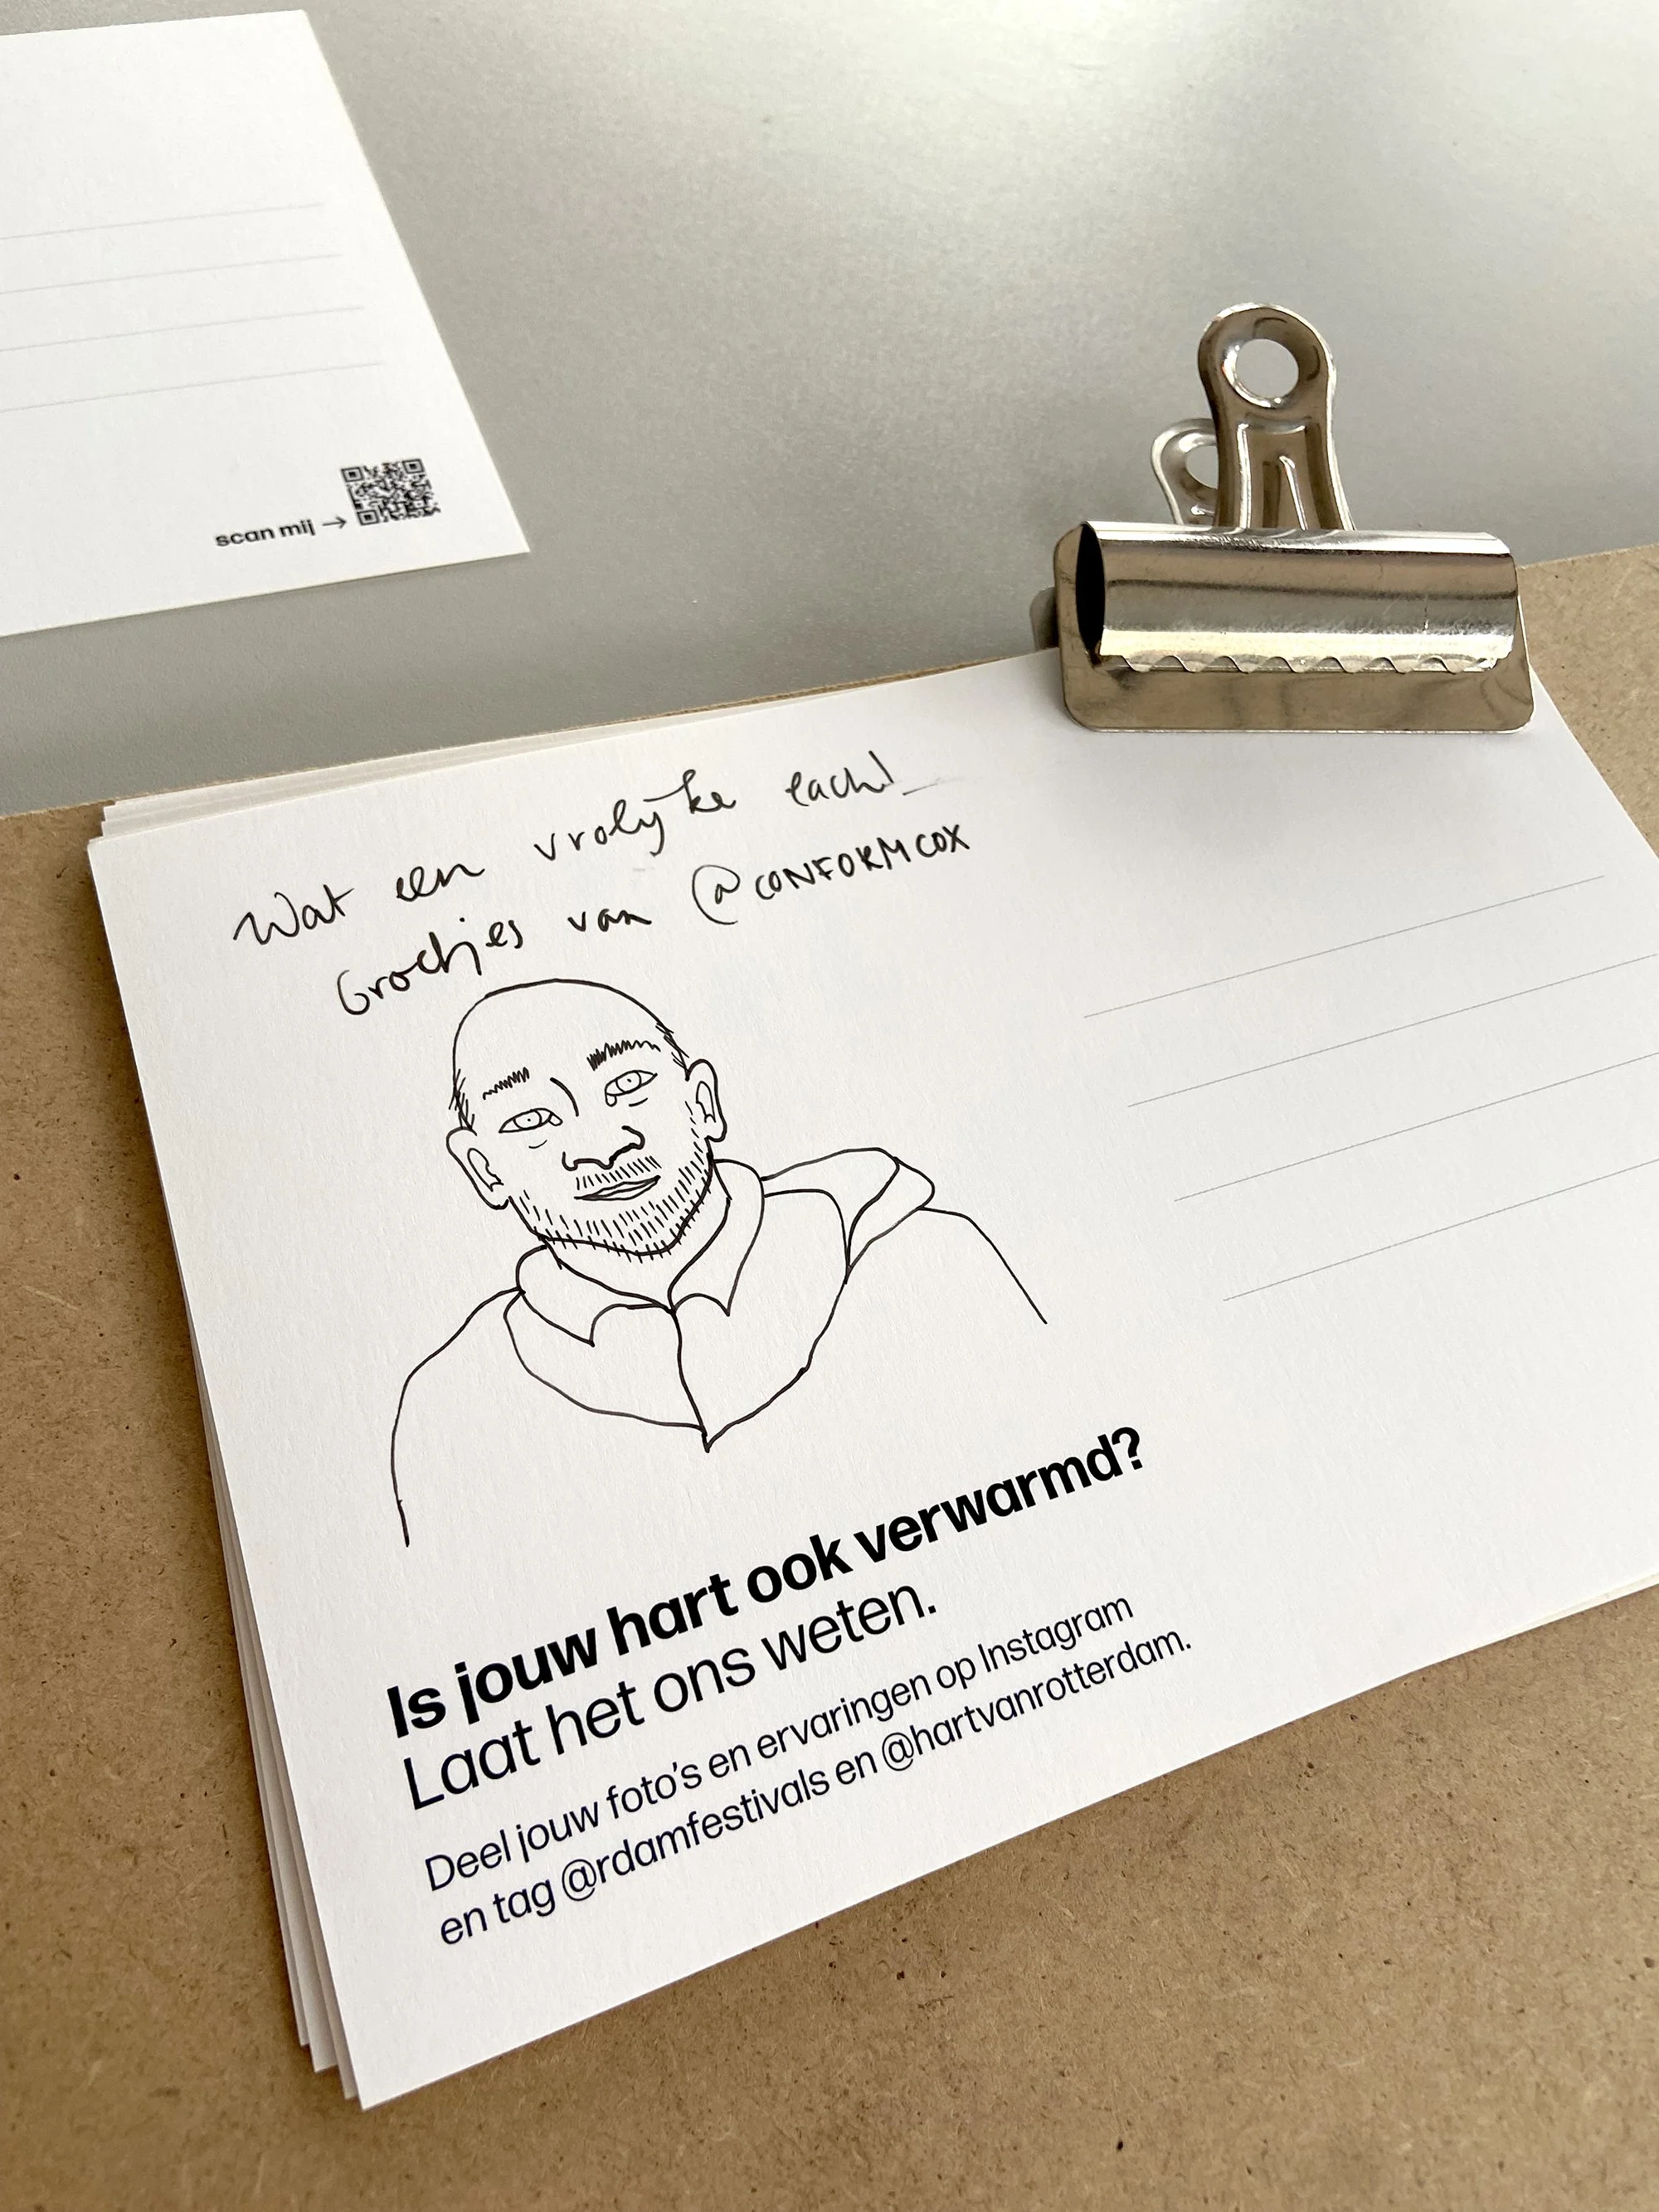 scan mij →
Wat een vrolijke lach!
Groetjes van @CONFORMCOX
Is jouw hart ook verwarmd?
Laat het ons weten.
Deel jouw foto's en ervaringen op Instagram
en tag @rdamfestivals en @hartvanrotterdam.